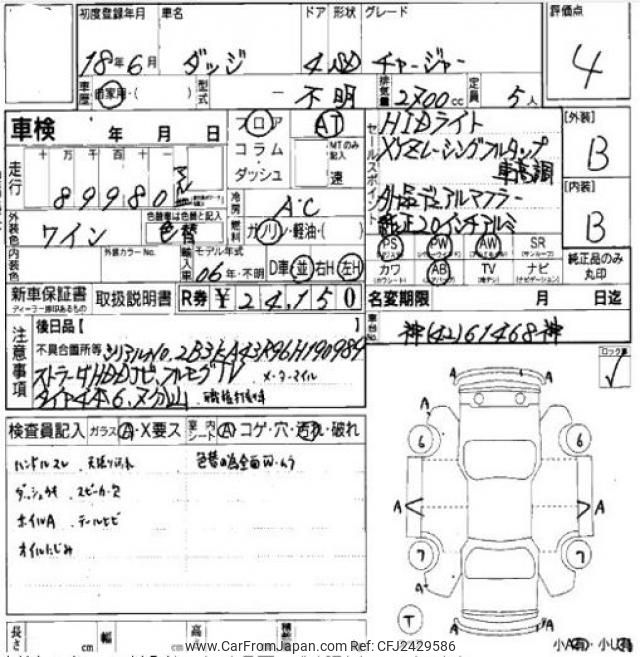 初度登録年月 車名 ドア 形状 グレード 評価点
18年6月 ダッジ 4 SD チャージャー 4
車歴 自家用・( ) 型式 ー不明 排気量 2700cc 定員 5人
車検 年 月 日 フロア AT セールスポイント HIDライト [外装]
コラム MTのみ記入 XYZレーシングフルタップ B
走行 十万千百十一 ダッシュ 速 車高調
89980 マイル 冷房 AC 外品デュアルマフラー [内装]
外装色 ワイン 色替車は色替と記入 色替 燃料 ガソリン・軽油・( ) 純正20インチアルミ B
内装色 外装カラーNo. 輸入車 モデル年式 06年・不明 D車 並 右H 左H
PS PW AW SR (サンルーフ) 純正品のみ丸印
カワ AB TV ナビ (ナビゲーション)
新車保証書 取扱説明書 R券 ¥24,150 名変期限 月 日迄
ディーラー捺印あるもの
注意事項 後日品【 】 車台No. 神(42)61468神
不具合箇所等 シリアルNo.2B3KA43R96H190989 ロック車
ストラーダHDDナビ、フルセグTV メーターマイル
タイヤ44・6、ヌケ山 職権打刻車
検査員記入 ガラス A・X要ス 室内シート A コゲ・穴・汚れ・破れ
ハンドルスレ 天張り汚れ 色替の為全面W・ムラ
ダッシュウキ スピーカー欠
ホイルA テールヒビ
オイルにじみ
A A
A
6 6
A A
7 7
A A
T A A
長さ cm 幅 cm 高さ
小A有・小U有
www.CarFromJapan.com Ref: CFJ2429586